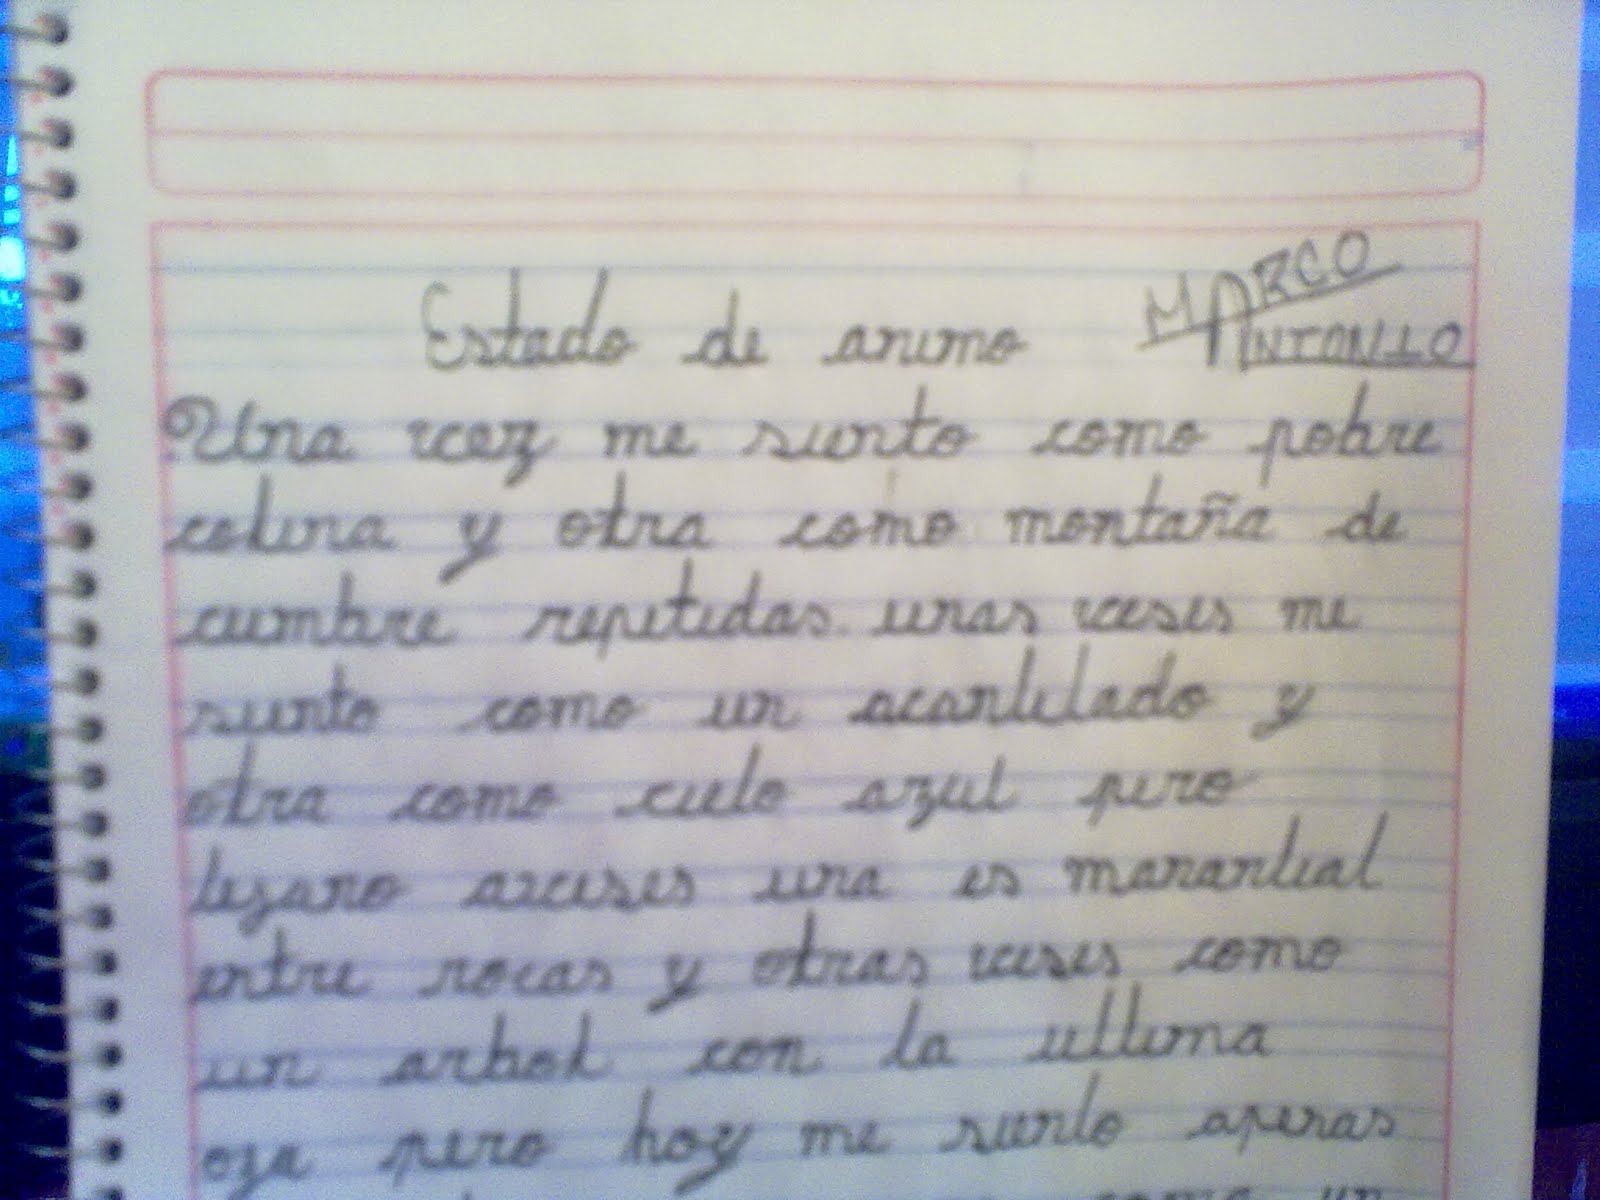 MARCO
Estado de animo ANTONIO
Una vez me siento como pobre
colina y otra como montaña de
cumbre repetidas. unas veses me
siento como un acantilado y
otra como cielo azul pero
lejano aveses una es manantial
entre rocas y otras veses como
un arbol con la ultima
oja pero hoy me siento apenas
como un